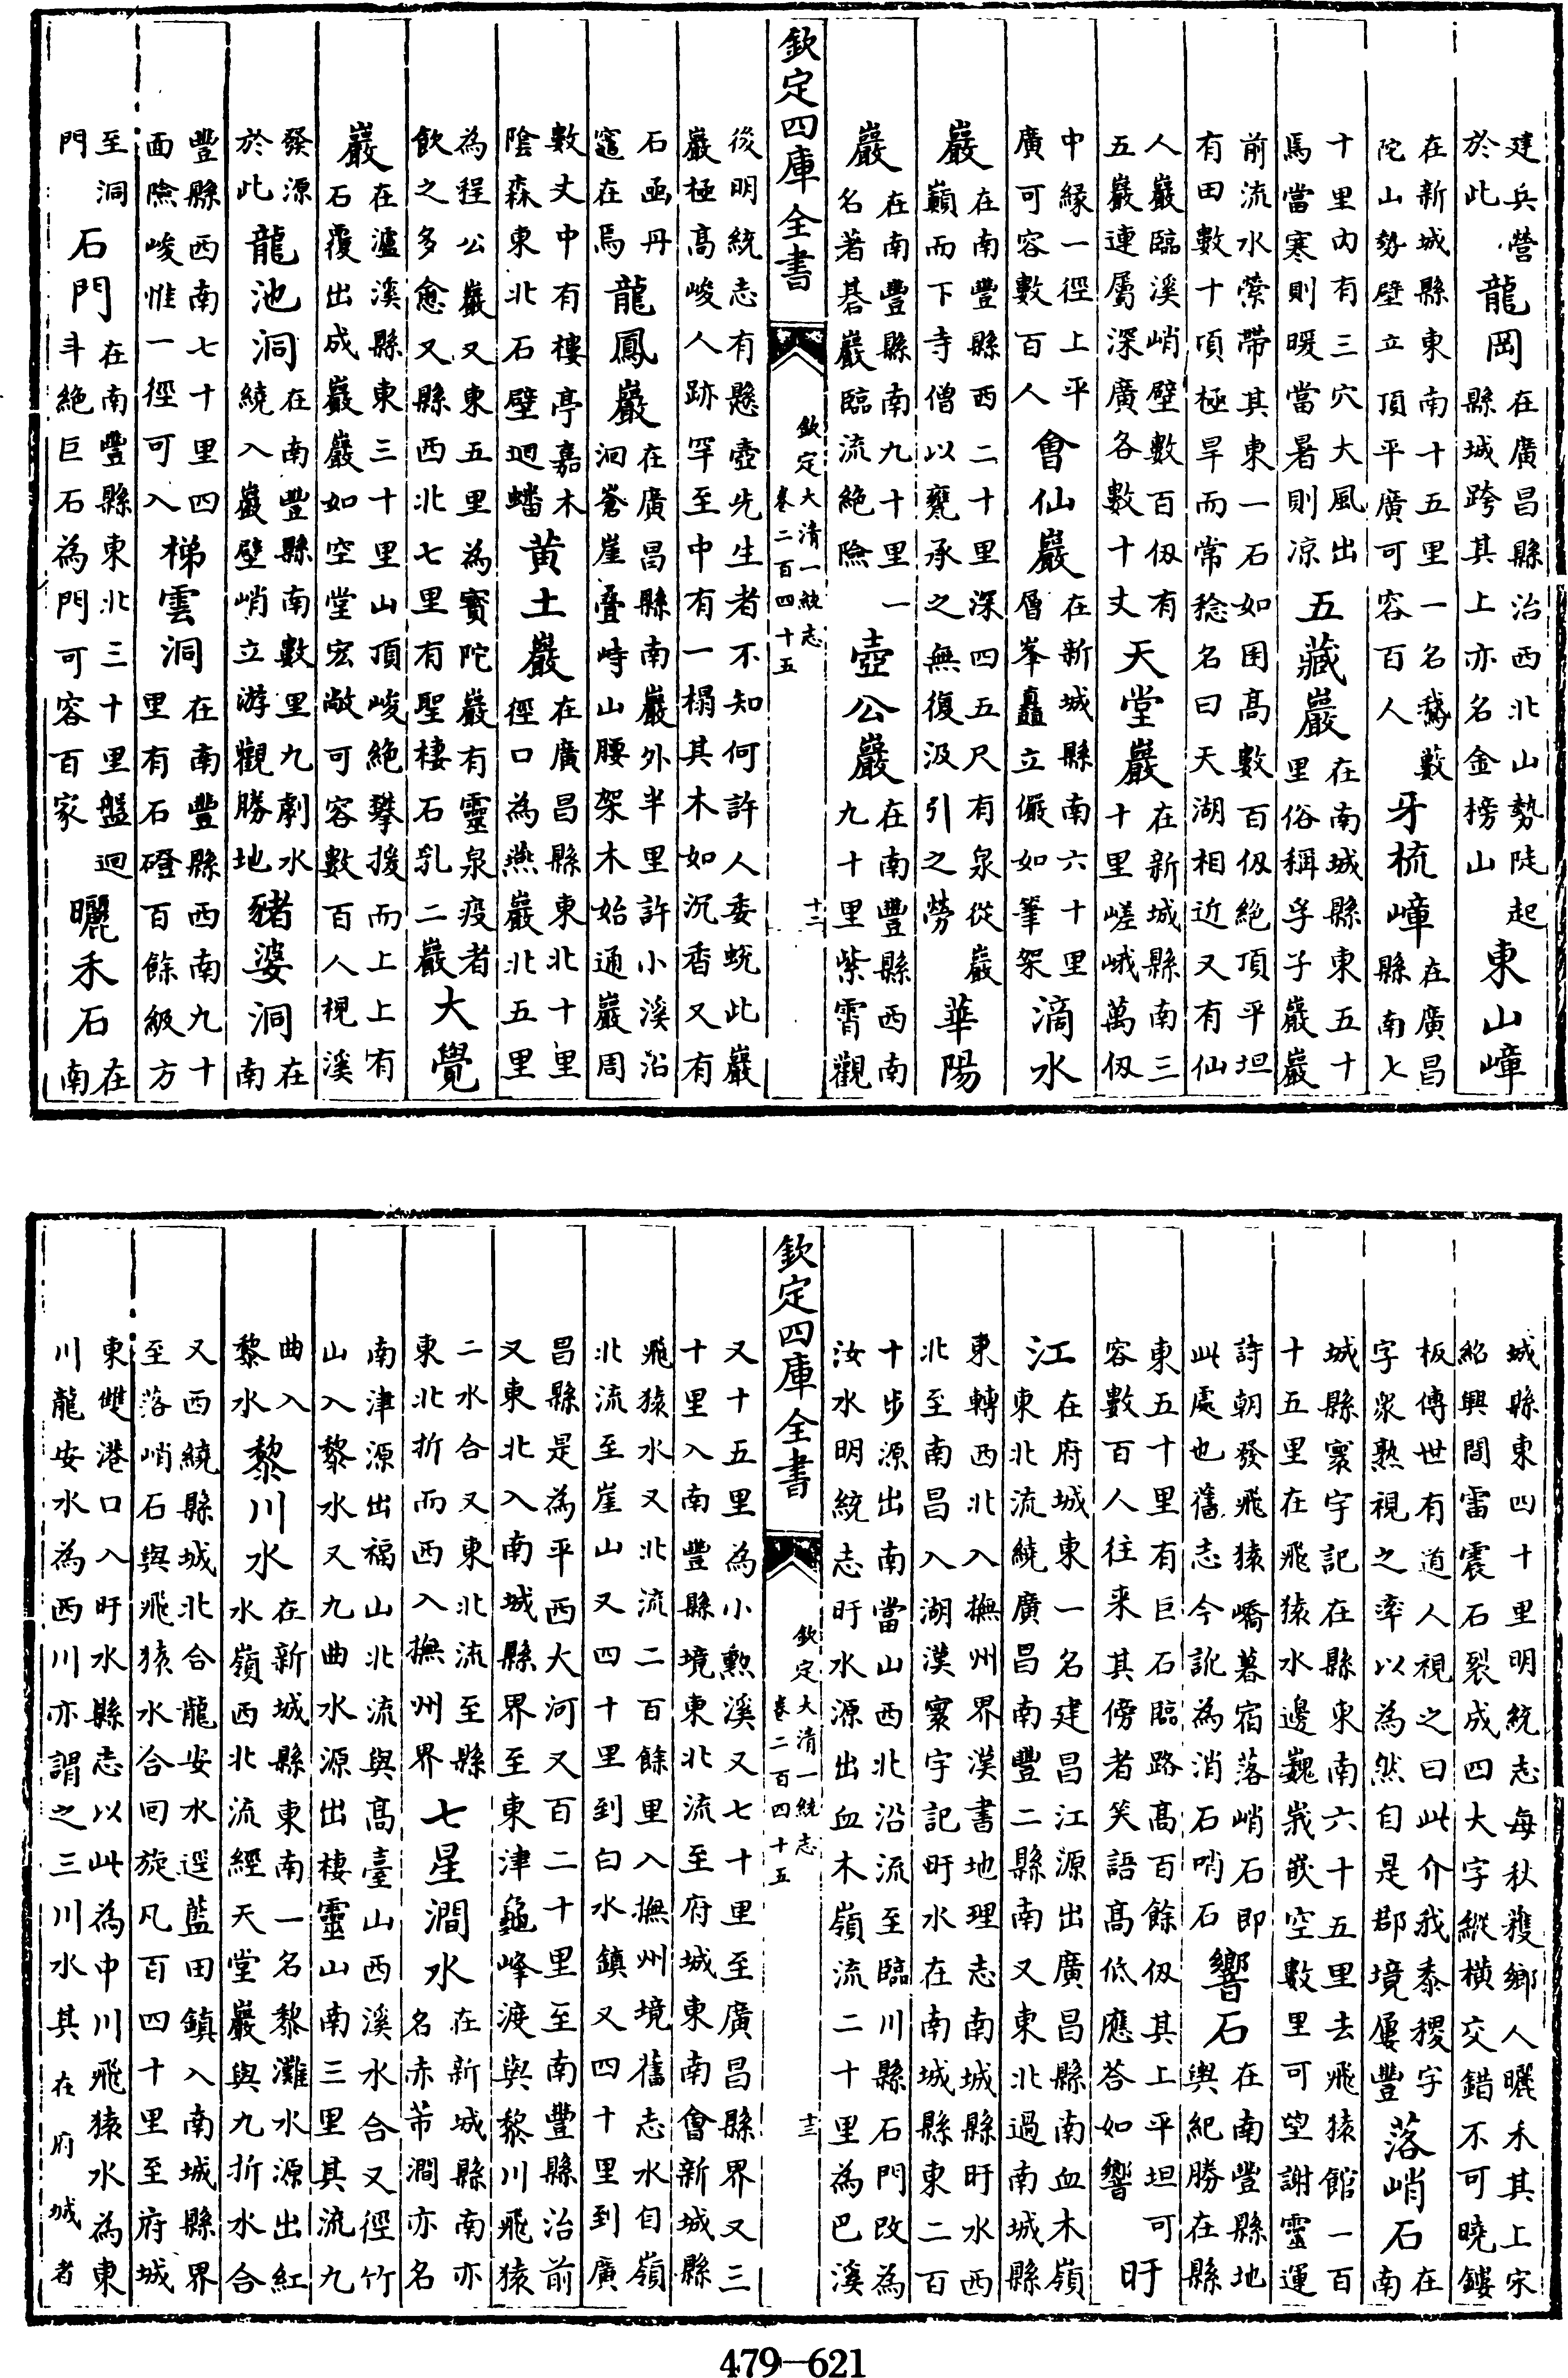 建兵營於此龍岡在廣昌縣治西北山勢陡起縣城跨其上亦名金榜山東山嶂
在新城縣東南十五里一名鵝藪陀山勢壁立頂平廣可容百人牙梳嶂在廣昌縣南七
十里內有三穴大風出馬當寒則暖當暑則凉五藏巖在南城縣東五十里俗稱孚子巖巖
前流水縈帶其東一石如囷髙數百仭絶頂平坦有田數十頃極旱而常稔名曰天湖相近又有仙
人巖臨溪峭壁數百仭有五巖連屬深廣各數十丈天堂巖在新城縣南三十里嵯峨萬仭
中緣一徑上平廣可容數百人會仙巖在新城縣南六十里層峯矗立儼如筆架滴水
巖在南豐縣西二十里深四五尺有泉從巖巔而下寺僧以甕承之無復汲引之勞華陽
巖在南豐縣南九十里一名著碁巖臨流絶險壺公巖在南豐縣西南九十里紫霄觀
欽定四庫全書 欽定大清一統志 卷二百四十五 十二
後明統志有懸壺先生者不知何許人委蛻此巖巖極髙峻人跡罕至中有一榻其木如沉香又有
石函丹竈在焉龍鳳巖在廣昌縣南巖外半里許小溪沿洄蒼崖疊峙山腰架木始通巖周
數丈中有樓亭嘉木陰森東北石壁迴蟠黄土巖在廣昌縣東北十里徑口為燕巖北五里
為程公巖又東五里為寳陀巖有靈泉疫者飲之多愈又縣西北七里有聖棲石乳二巖大覺
巖在瀘溪縣東三十里山頂峻絶攀援而上上有石覆出成巖巖如空堂宏敞可容數百人視溪
發源於此龍池洞在南豐縣南數里九劇水繞入巖壁峭立游觀勝地豬婆洞在南
豐縣西南七十里四面險峻惟一徑可入梯雲洞在南豐縣西南九十里有石磴百餘級方
至洞門石門在南豐縣東北三十里盤迴斗絶巨石為門可容百家曬禾石在南
城縣東四十里明統志每秋穫鄉人曬禾其上宋紹興間雷震石裂成四大字縱橫交錯不可曉鏤
板傳世有道人視之曰此介我黍稷字字衆熟視之率以為然自是郡境屢豐落峭石在南
城縣寰宇記在縣東南六十五里去飛猿館一百十五里在飛猿水邊巍峩嵌空數里可望謝靈運
詩朝發飛猿嶠暮宿落峭石即此處也舊志今訛為消石哨石響石在南豐縣地輿紀勝在縣
東五十里有巨石臨路髙百餘仭其上平坦可容數百人往来其傍者笑語髙低應荅如響盱
江在府城東一名建昌江源出廣昌縣南血木嶺東北流繞廣昌南豐二縣南又東北過南城縣
東轉西北入撫州界漢書地理志南城縣盱水西北至南昌入湖漢寰宇記盱水在南城縣東二百
十步源出南當山西北沿流至臨川縣石門改為汝水明統志盱水源出血木嶺流二十里為巴溪
欽定四庫全書 欽定大清一統志 卷二百四十五 十三
又十五里為小勲溪又七十里至廣昌縣界又三十里入南豐縣境東北流至府城東南會新城縣
飛猿水又北流二百餘里入撫州境舊志水自嶺北流至崖山又四十里到白水鎮又四十里到廣
昌縣是為平西大河又百二十里至南豐縣治前又東北入南城縣界至東津龜峰渡與黎川飛猿
二水合又東北流至縣東北折而西入撫州界七星澗水在新城縣南亦名赤芾澗亦名
南津源出福山北流與髙臺山西溪水合又徑竹山入黎水又九曲水源出棲靈山南三里其流九
曲入黎水黎川水在新城縣東南一名黎灘水源出紅水嶺西北流經天堂巖與九折水合
又西繞縣城北合龍安水逕藍田鎮入南城縣界至落峭石與飛猿水合回旋凡百四十里至府城
東雙港口入盱水縣志以此為中川飛猿水為東川龍安水為西川亦謂之三川水其在府城者
479—621